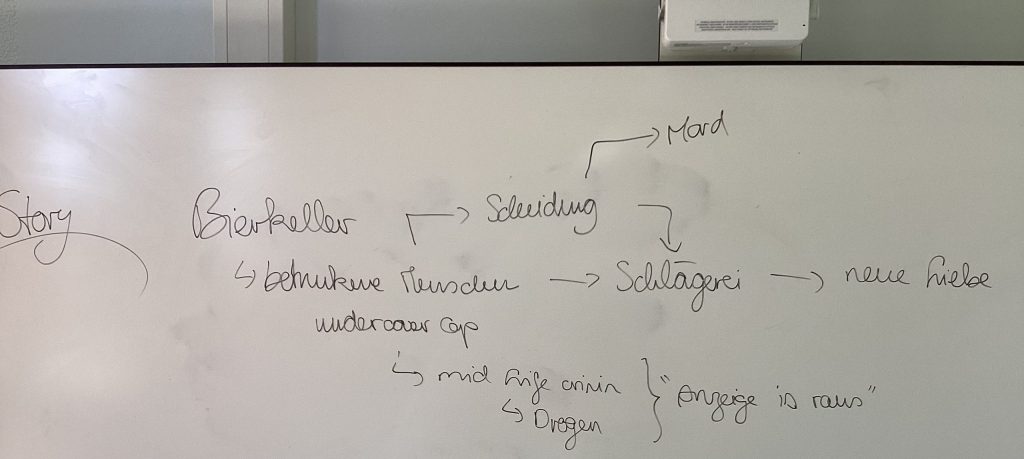 Mord
Story
Bierkeller → Scheidung
↳ betrunkene Menschen → Schlägerei → neue Liebe
undercover cop
↳ mid life crisis
↳ Drogen
} "Anzeige is raus"